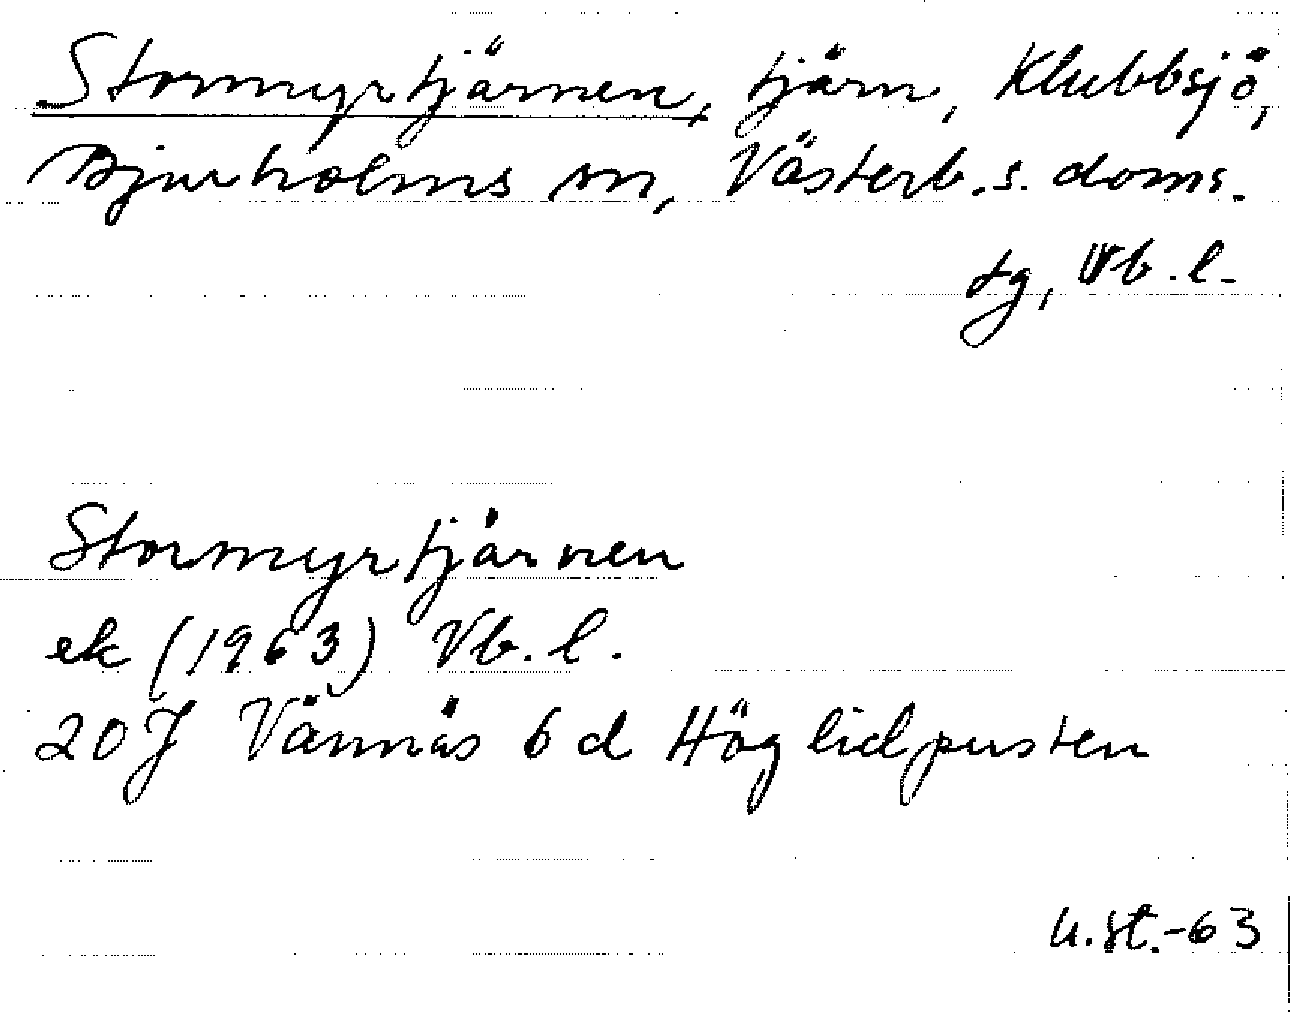 Stormyrtjärnen, tjärn, Klubbsjö,
Bjurholms sn, Västerb. s. doms.
tg, Vb. l.
Stormyrtjärnen
ek (1963) Vb. l.
20 J Vännäs 6 d Höglidpusten
U. St. -63